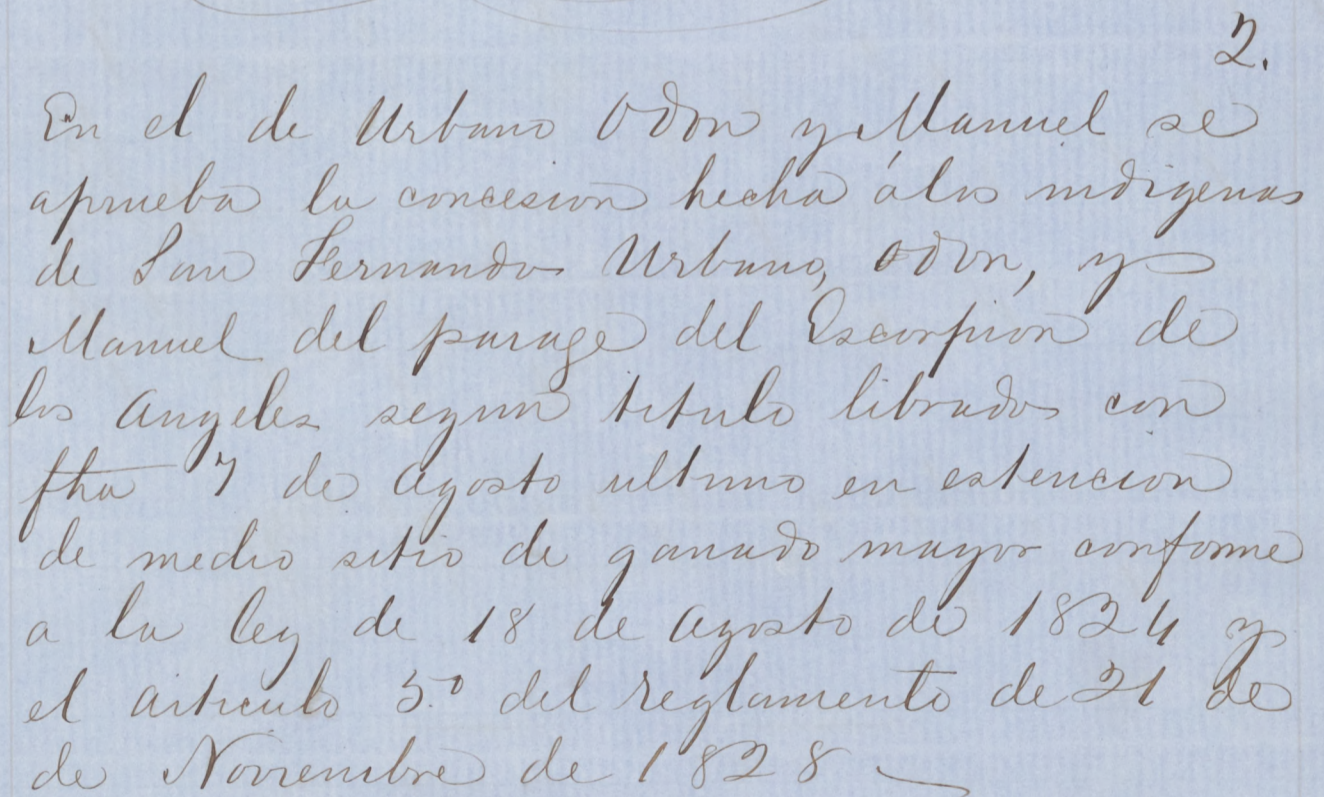 2.
En el de Urbano Odon y Manuel se
aprueba la concesion hecha á los indigenas
de San Fernando Urbano, Odon, y
Manuel del parage del Escorpion de
los Angeles segun titulo librados con
fha 7 de Agosto ultimo en estencion
de medio sitio de ganado mayor conforme
a la ley de 18 de Agosto de 1824 y
el articulo 5.º del reglamento de 21 de
de Noviembre de 1828